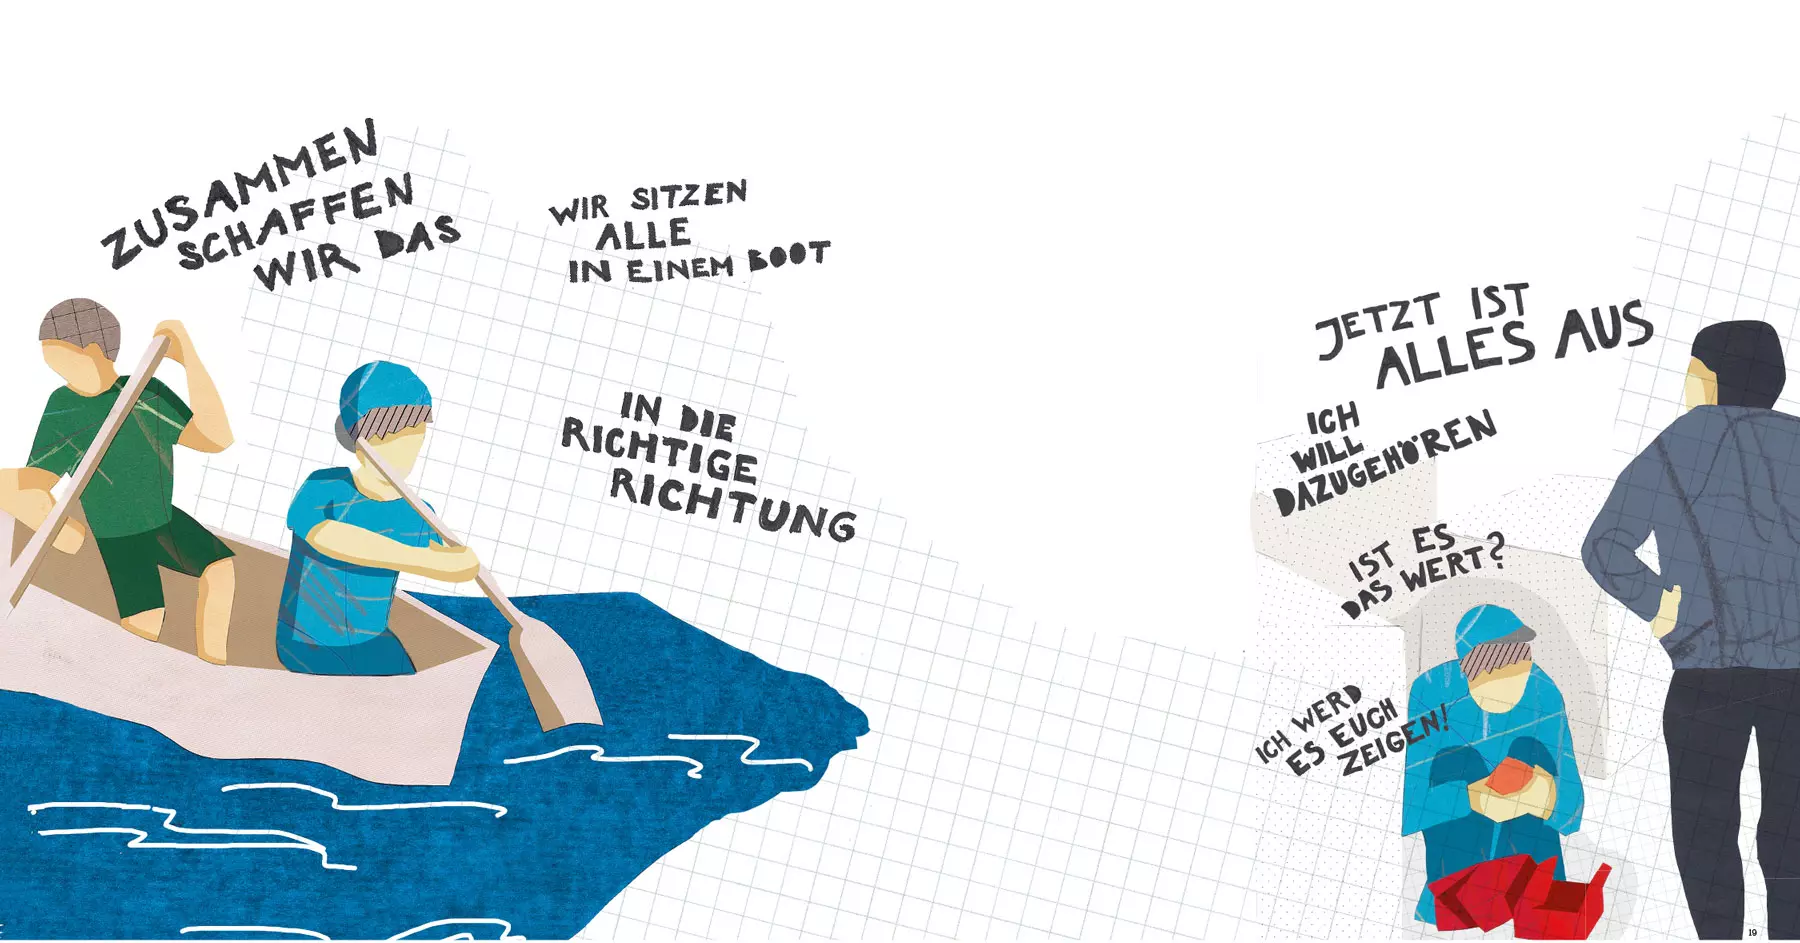 ZUSAMMEN
SCHAFFEN
WIR DAS
WIR SITZEN
ALLE
IN EINEM BOOT
IN DIE
RICHTIGE
RICHTUNG
JETZT IST
ALLES AUS
ICH
WILL
DAZUGEHÖREN
IST ES
DAS WERT?
ICH WERD
ES EUCH
ZEIGEN!
19